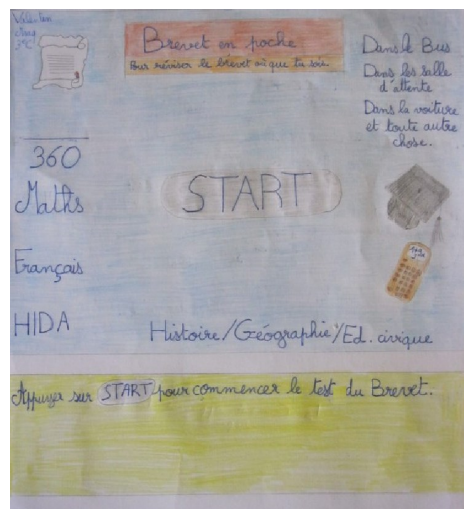 3°C
Brevet en poche
Pour réviser le brevet où que tu sois.
Dans le Bus
Dans les salle
d'attente
Dans la voiture
et toute autre
chose.
360
Maths
START
Français
HIDA
Histoire/Géographie/Ed. civique
Appuyer sur START pour commencer le test du Brevet.